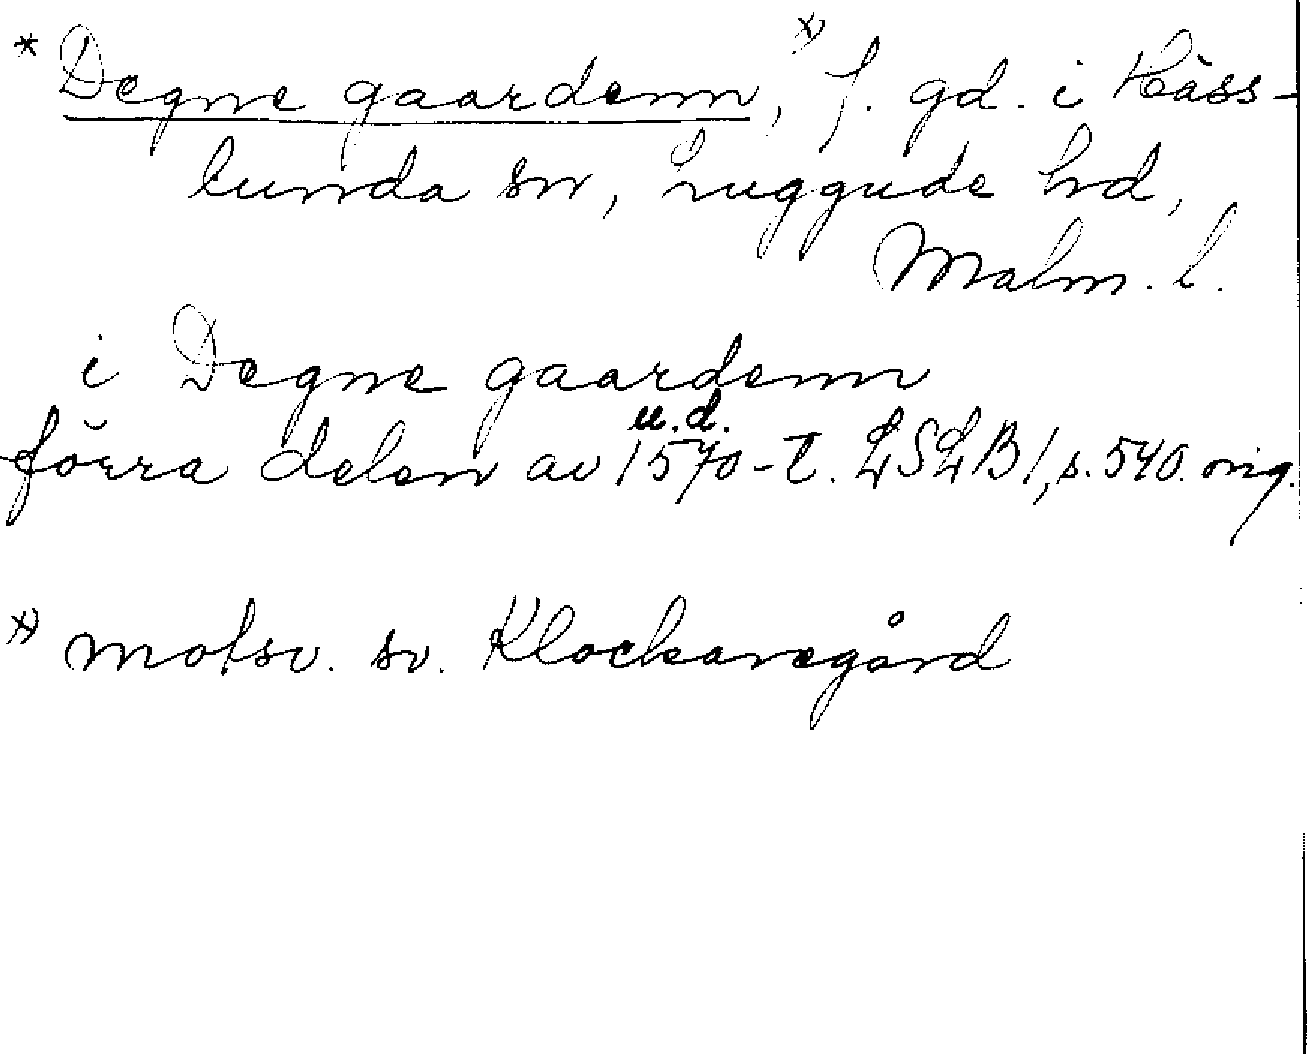 * Degne gaardenn, x) f. gd. i Häss-
lunda sn, Luggude hd,
Malm. l.
i Degne gaardenn
u.d.
förra delen av 1570-t. LSLB1, s. 540. orig.
x) motsv. sv. Klockaregård